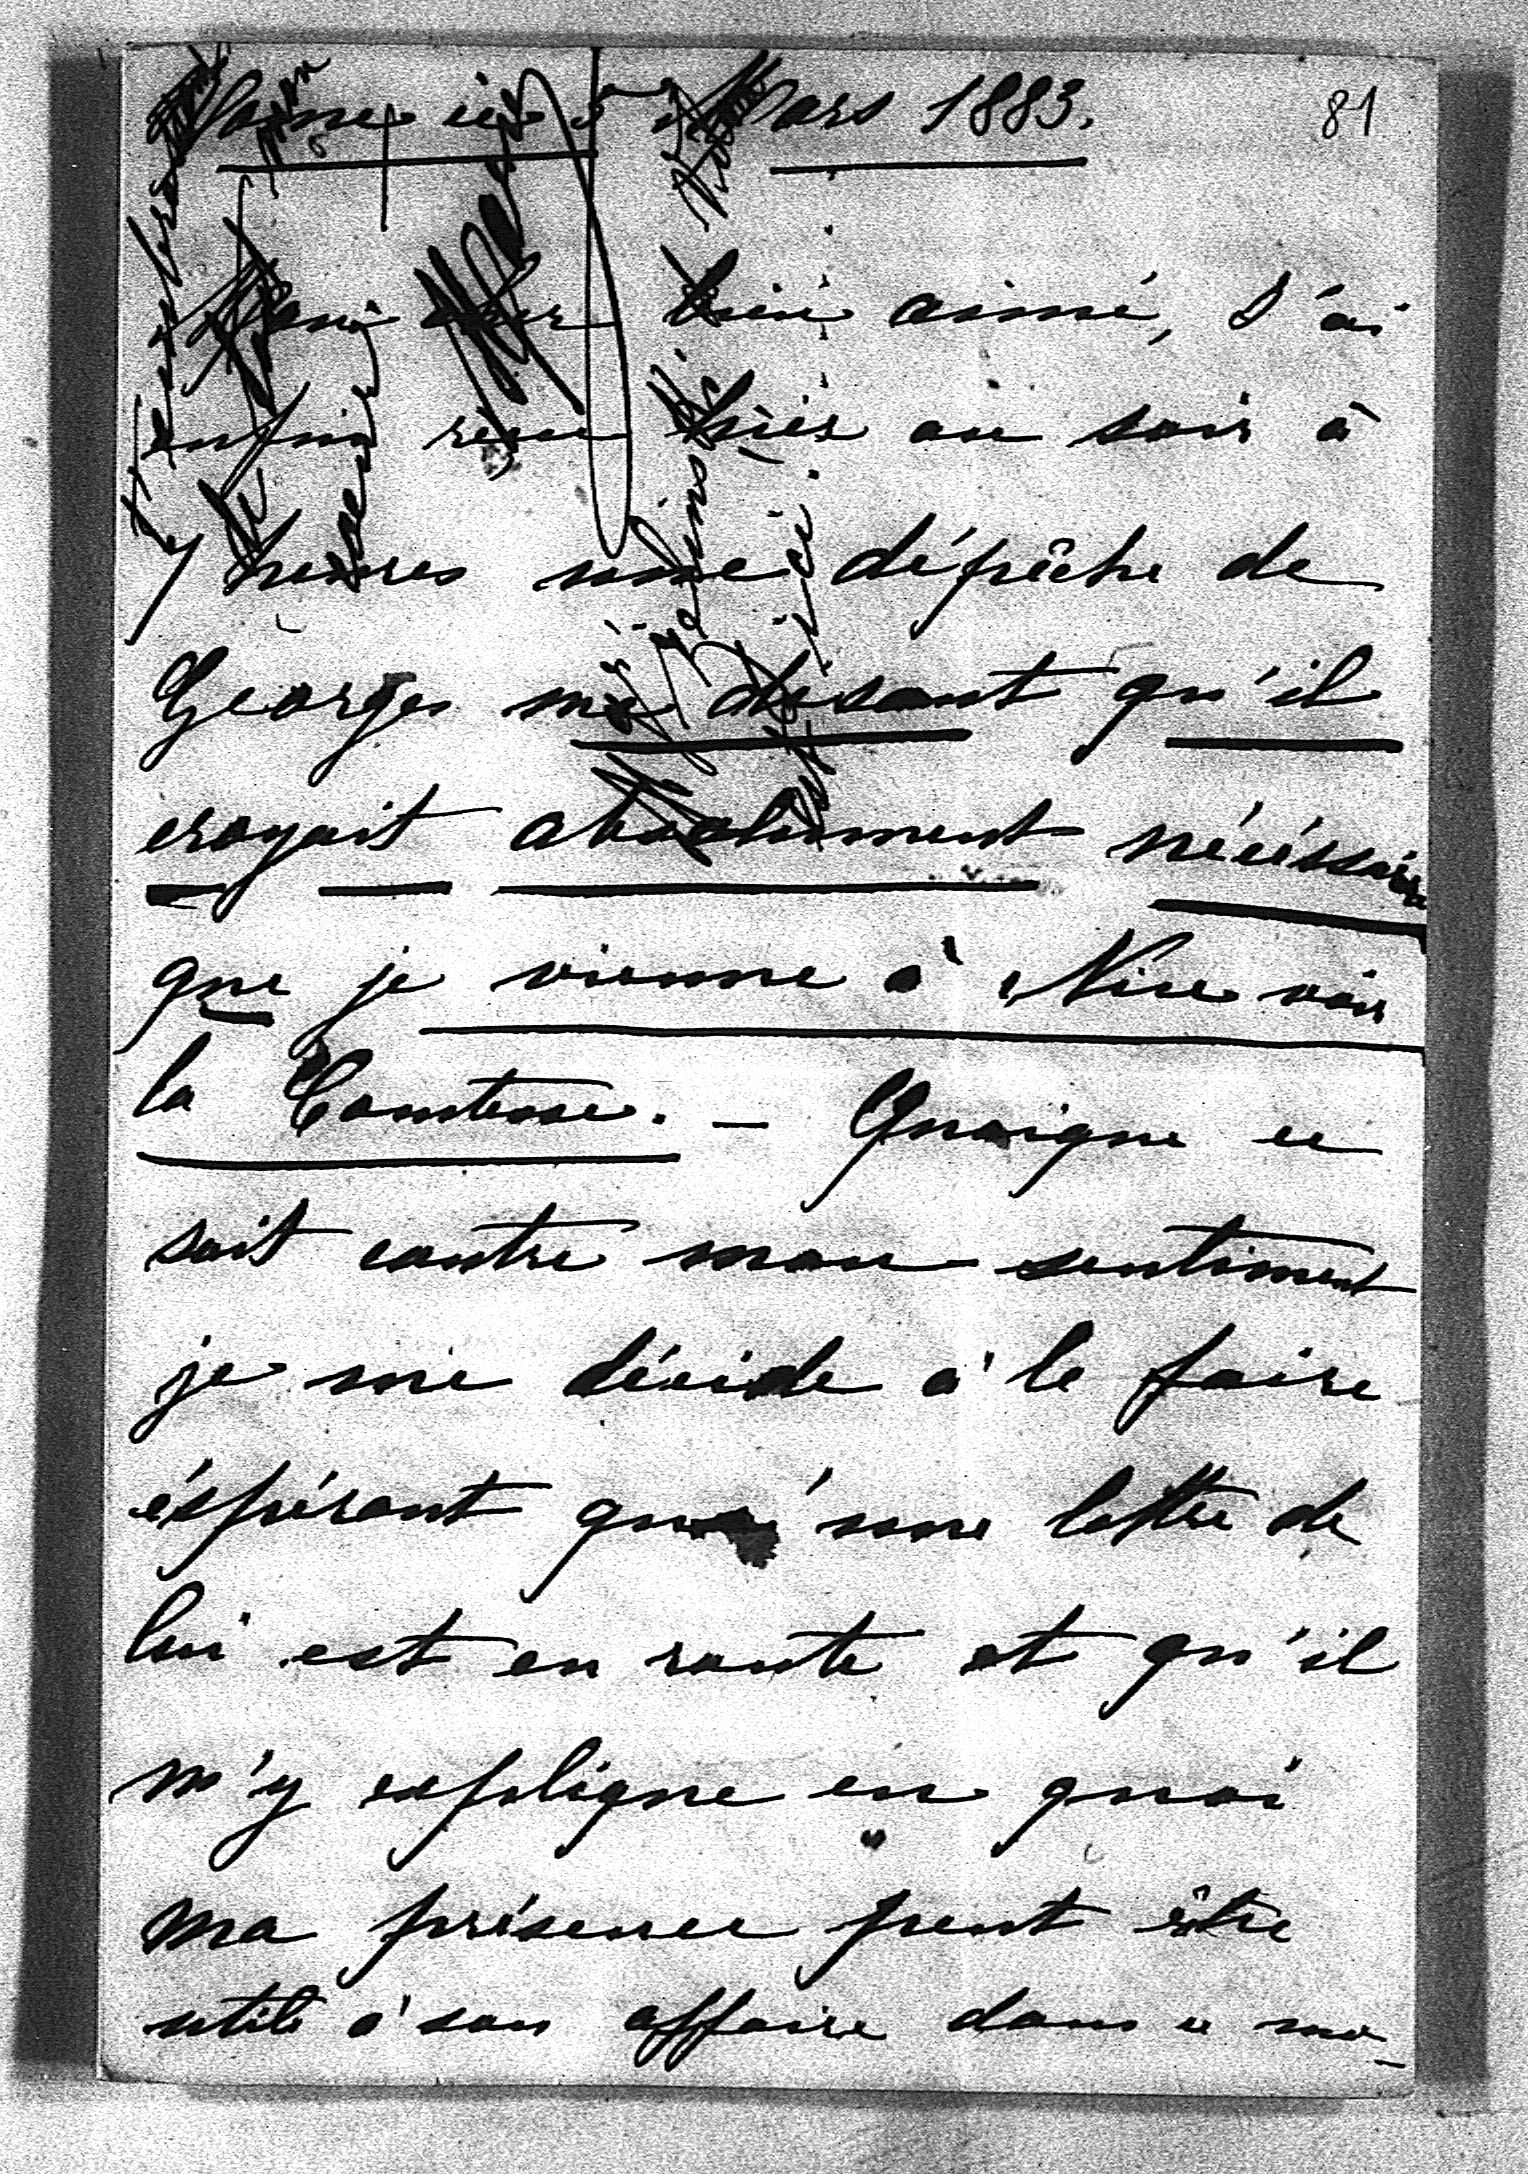 Mars 1883.
81
Mon cher bien aimé, J'ai
enfin reçu hier au soir à
7 heures une dépêche de
Georges me disant qu'il
croyait absolument nécéssaire
que je vienne à Nice voir
la Comtesse. — Quoique ce
soit contre mon sentiment
je me décide à le faire
éspérant qu'une lettre de
lui est en route et qu'il
m'y explique en quoi
ma présence peut être
utile à son affaire dans ce mo-